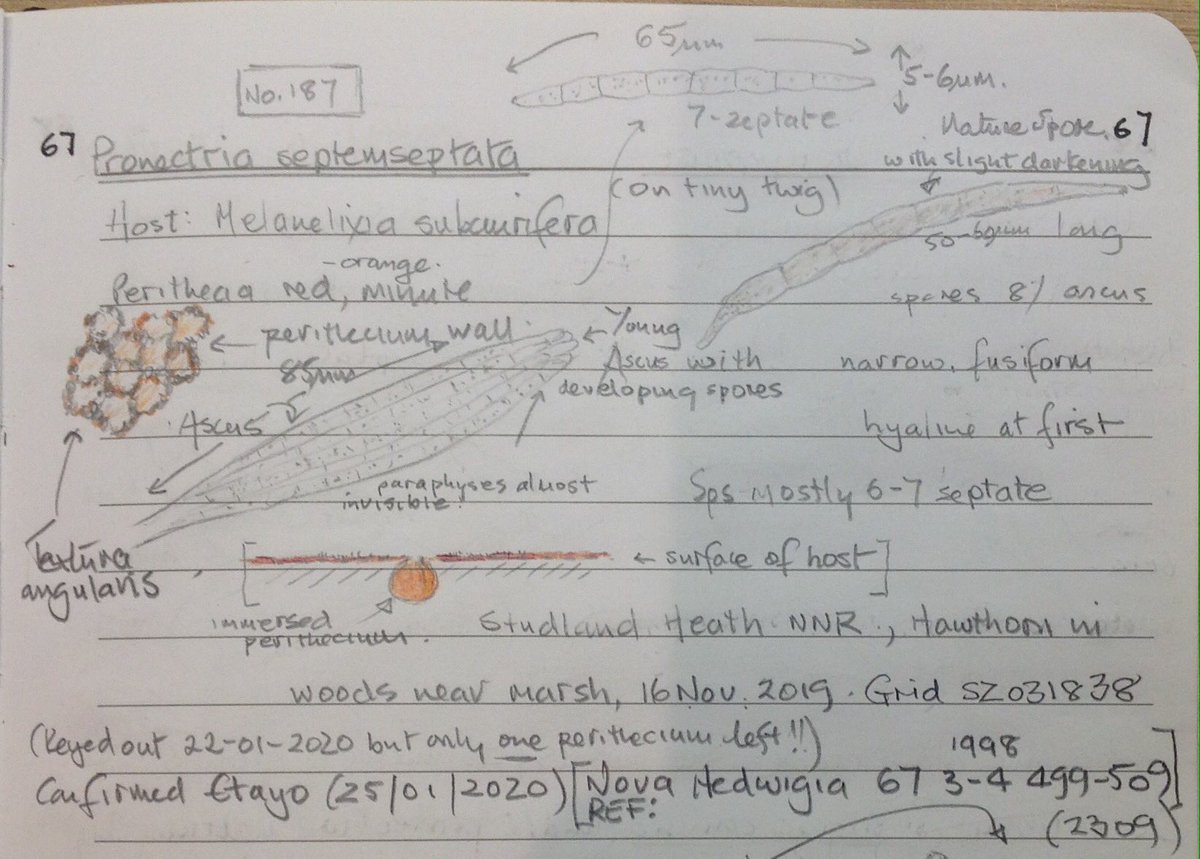 65µm
No. 187
5-6µm.
7-septate
Mature Spore. 67
67 Pronectria septemseptata
with slight darkening
(on tiny twig)
Host: Melanelixia subaurifera
50-60µm long
-orange.
Perithecia red, minute
spores 8/ ascus
perithecium wall.
Young
Ascus with
developing spores
narrow, fusiform
85µm
Ascus
hyaline at first
paraphyses almost
invisible.
Sps mostly 6-7 septate
textura
angularis
[ ← surface of host ]
immersed
perithecium.
Studland Heath NNR., Hawthorn in
woods near marsh, 16 Nov. 2019. Grid SZ031838
(Keyed out 22-01-2020 but only one perithecium left!!)
1998
Confirmed Etayo (25/01/2020) [Nova Hedwigia 67 3-4 499-509]
REF:
(2309)